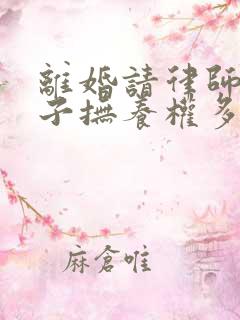 離婚請律師
子撫養權多
麻倉唯